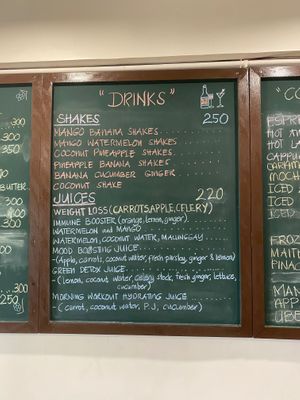 "DRINKS"
SHAKES 250
MANGO BANANA SHAKES
MANGO WATERMELON SHAKES
COCONUT PINEAPPLE SHAKES
PINEAPPLE BANANA SHAKES
BANANA CUCUMBER GINGER
COCONUT SHAKE
JUICES 220
WEIGHT LOSS (CARROTS, APPLE, CELERY)
IMMUNE BOOSTER (orange, lemon, ginger)
WATERMELON and MANGO
WATERMELON, COCONUT WATER, MALUNGGAY
MOOD BOOSTING JUICE
- (Apple, carrot, coconut water, fresh parsley, ginger & lemon)
GREEN DETOX JUICE
- (lemon, coconut water, celery stock, fresh ginger, lettuce, cucumber)
MORNING WORKOUT HYDRATING JUICE
- (carrot, coconut water, P.J, cucumber)
300
300
350
BUTTER
300
300
250
"CO
ESPRE
HOT
HOT LA
CAPPU
MOCH
ICED
ICED
ICED
FROZ
MAIT
PINAC
MAN
APP
UBE